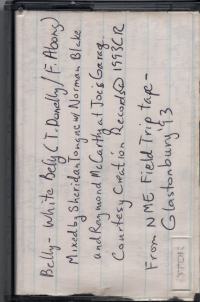 Belly - White Belly (T. Donelly / F. Abong)
Mixed by Sheridan Tongue w/ Norman Blake
and Raymond McCarthy at Joe's Garag
Courtesy Creation Records © 1993 CR
From NME Field Trip tape -
Glastonbury '93